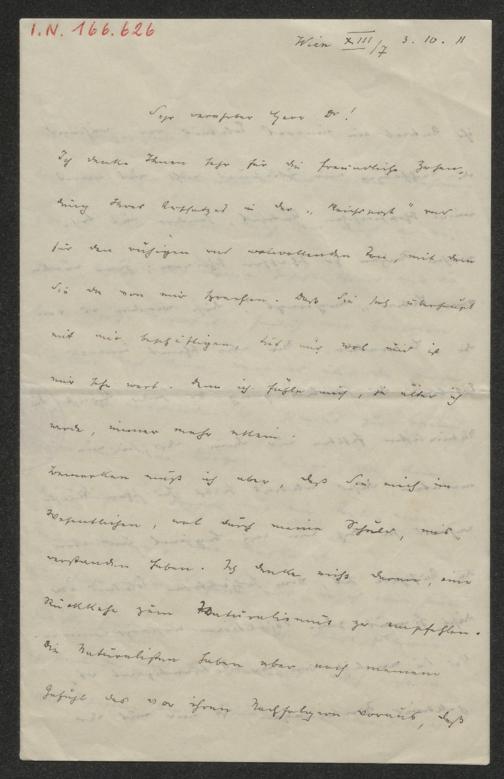 I.N. 166.626
Wien XIII/7 3. 10. 11
Sehr verehrter Herr Dr!
Ich danke Ihnen sehr für die freundliche Zusen-
dung Ihres Aufsatzes in der „Reichspost" und
für den ruhigen und wolwollenden Ton, mit dem
Sie da von mir sprechen. Daß Sie sich überhaupt
mit mir beschäftigen, tut mir wol und ist
mir sehr wert. Denn ich fühle mich, je älter ich
werde, immer mehr allein.
Bemerken muß ich aber, daß Sie mich im
Wesentlichen, wol durch meine Schuld, mis-
verstanden haben. Ich denke nicht daran, eine
Rückkehr zum Naturalismus zu empfehlen.
Die Naturalisten haben aber nach meinem
Gefühl das vor ihren Nachfolgern voraus, daß